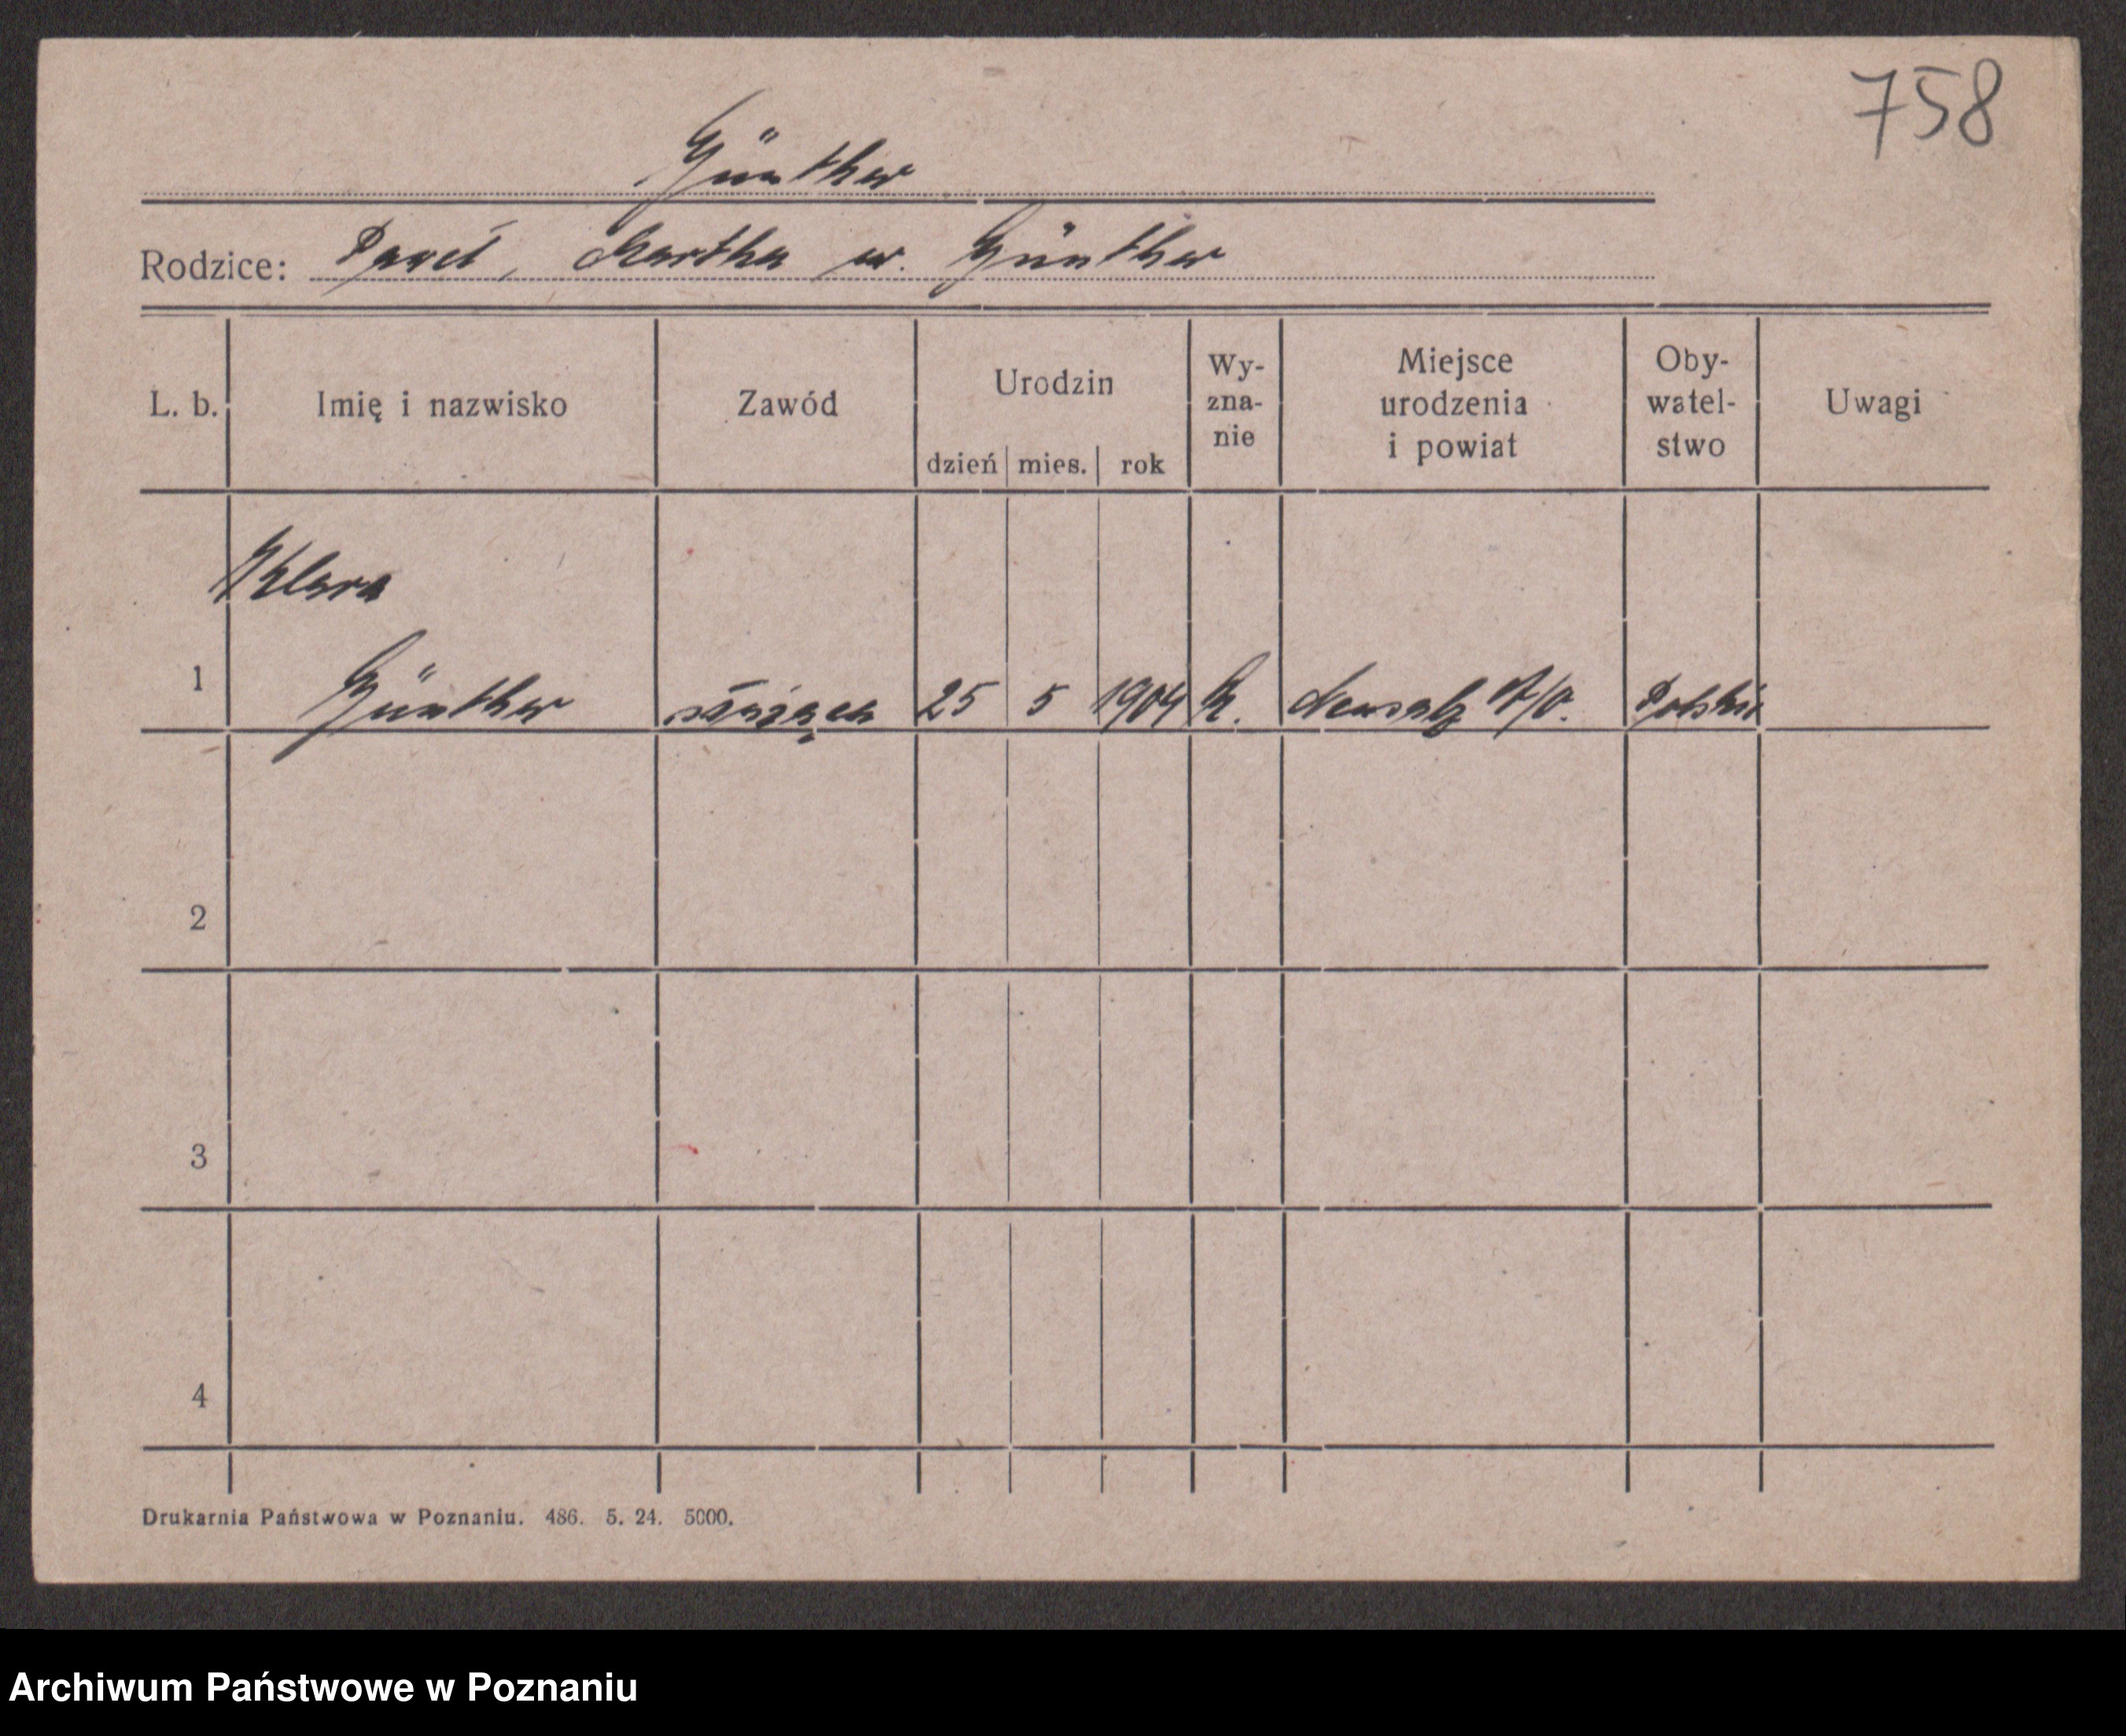 758
Günther
Rodzice: Paweł, Martha ur. Günther
L. b. Imię i nazwisko Zawód Urodzin dzień mies. rok Wy-zna-nie Miejsce urodzenia i powiat Oby-watel-stwo Uwagi
Klara
1 Günther służąca 25 5 1904 k. Neusalz A/O. Polskie
2
3
4
Drukarnia Państwowa w Poznaniu. 486. 5. 24. 5000.
Archiwum Państwowe w Poznaniu